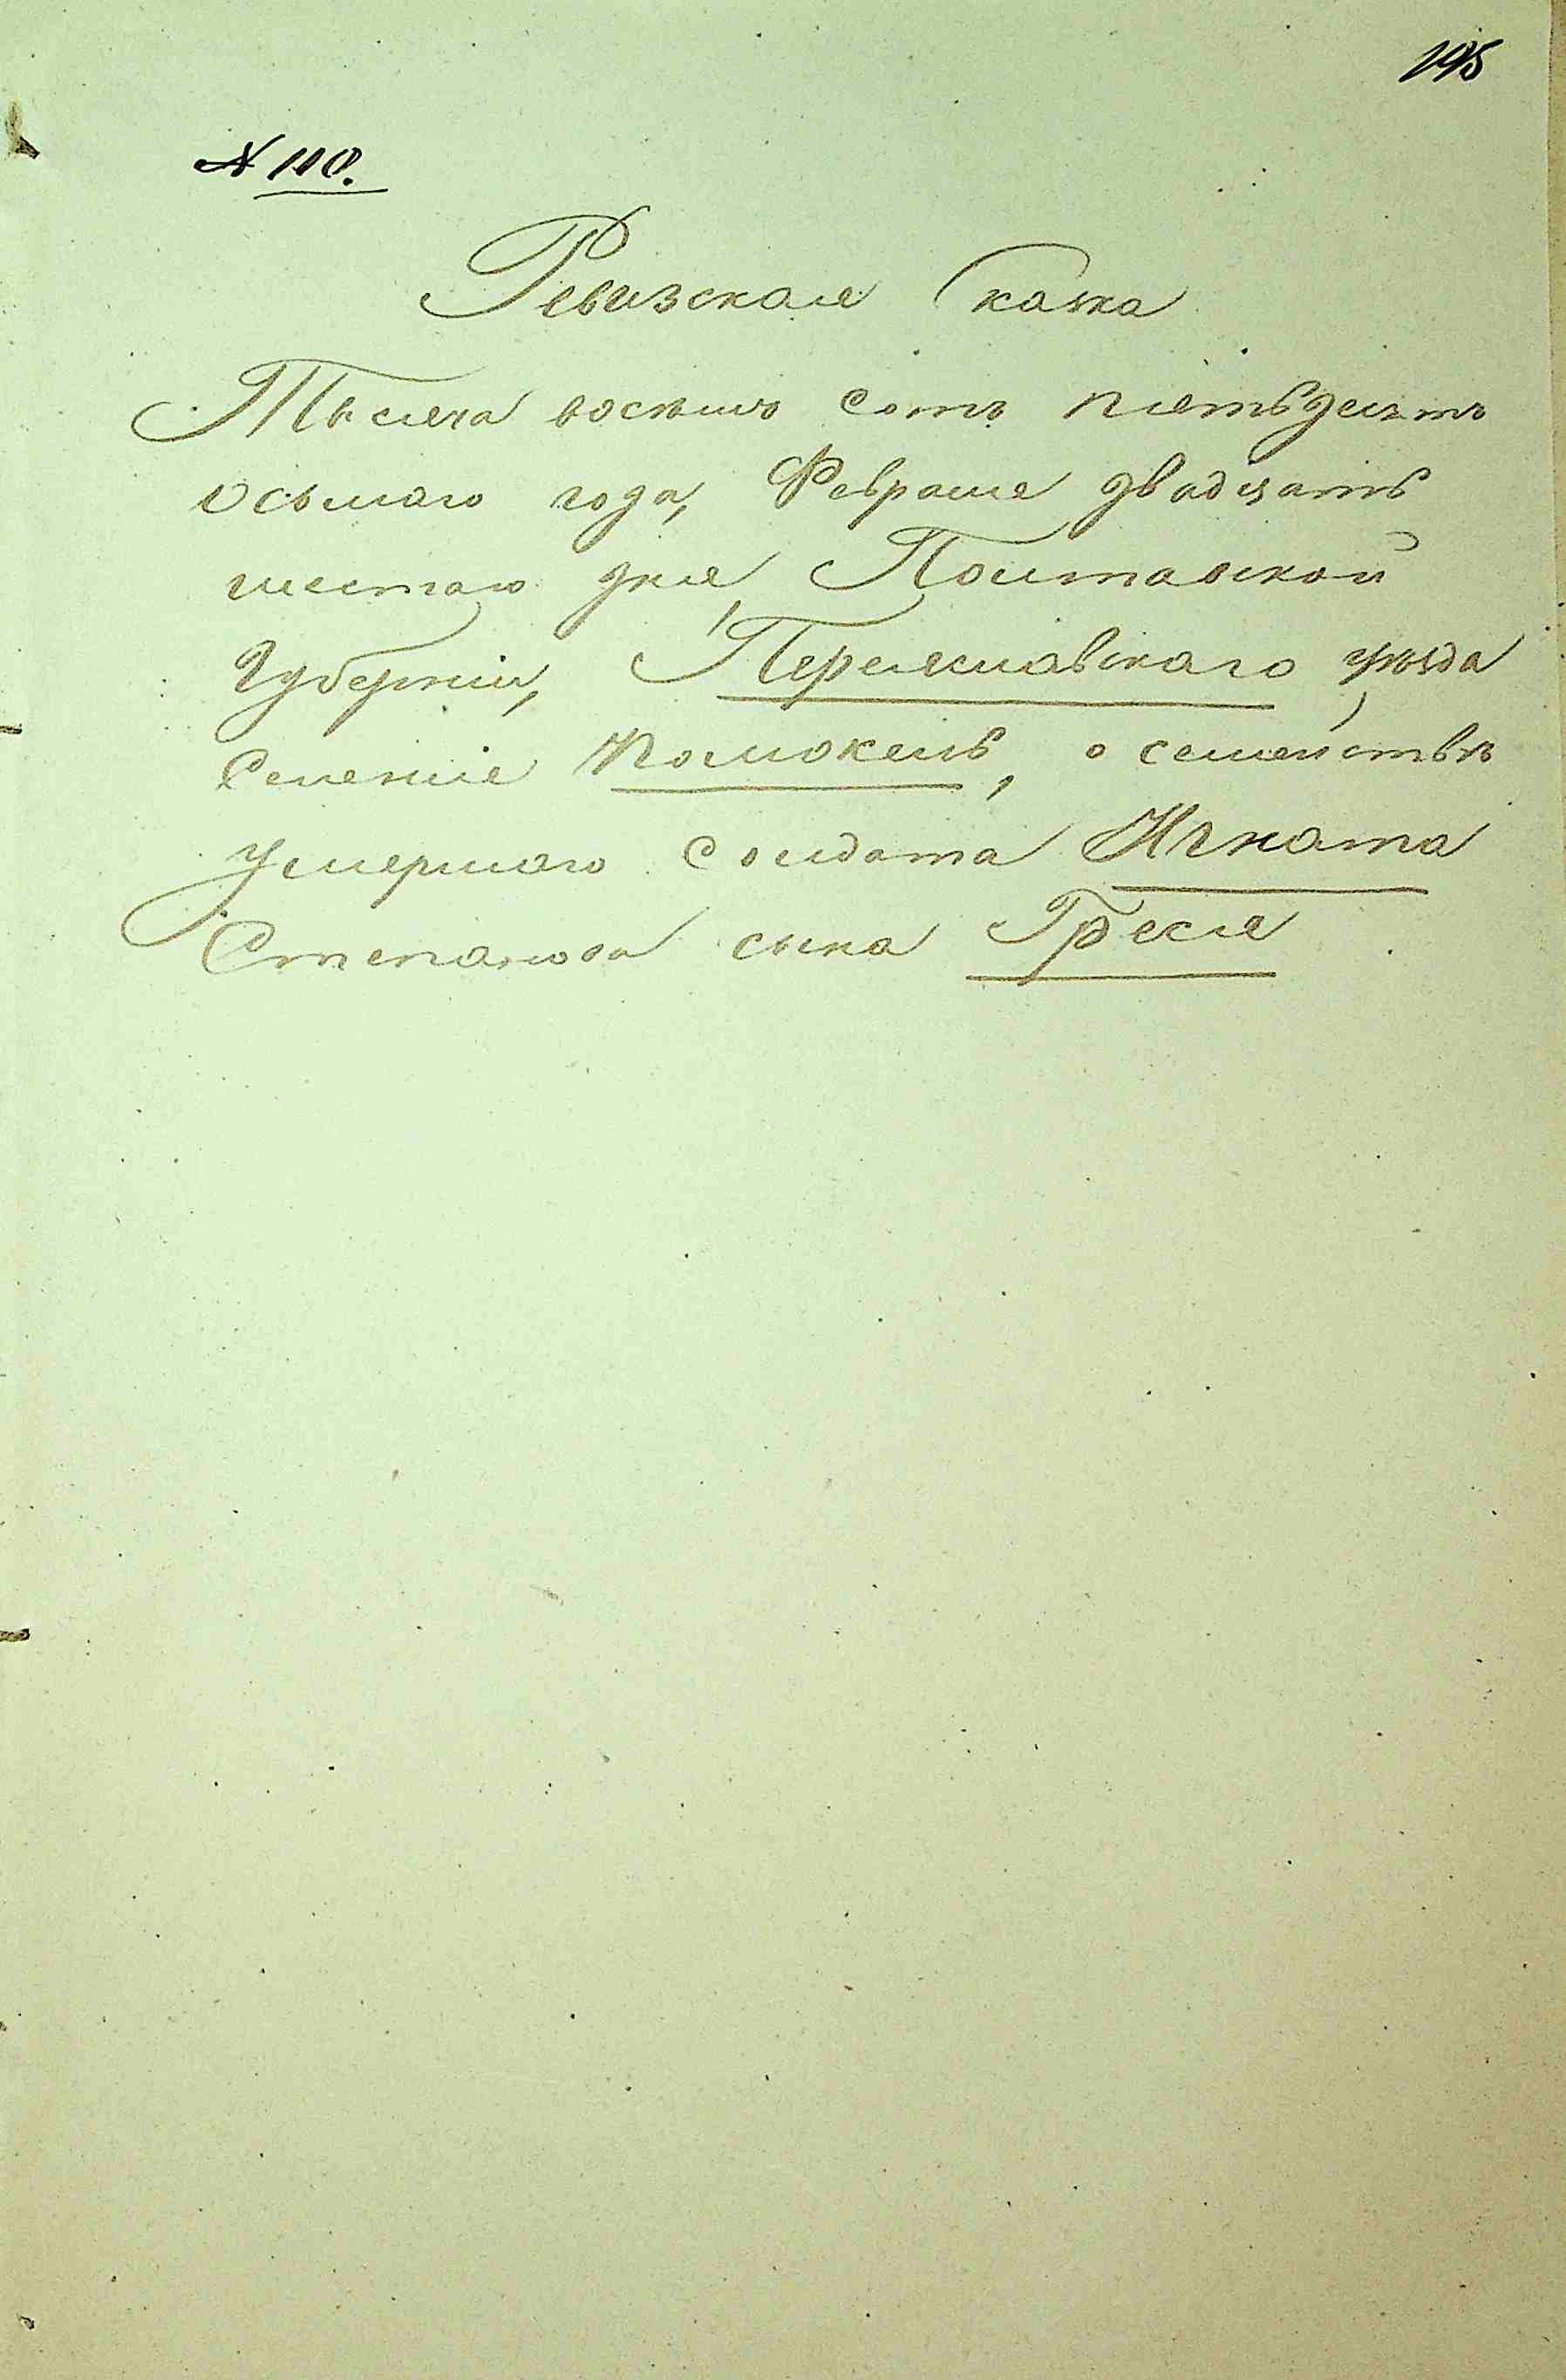 195
№ 110.
Ревизская Сказка
Тысяча восѣмь сотъ пятьдесятъ
осьмаго года, Февраля двадцать
шестаго дня Полтавской
Губерніи, Переяславскаго уѣзда
Селеніе Помокель, о семействѣ
умершаго Солдата Игната
Степанова сына Греся